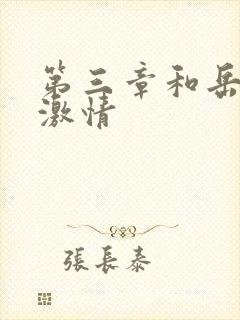 第三章和岳
激情
張長泰